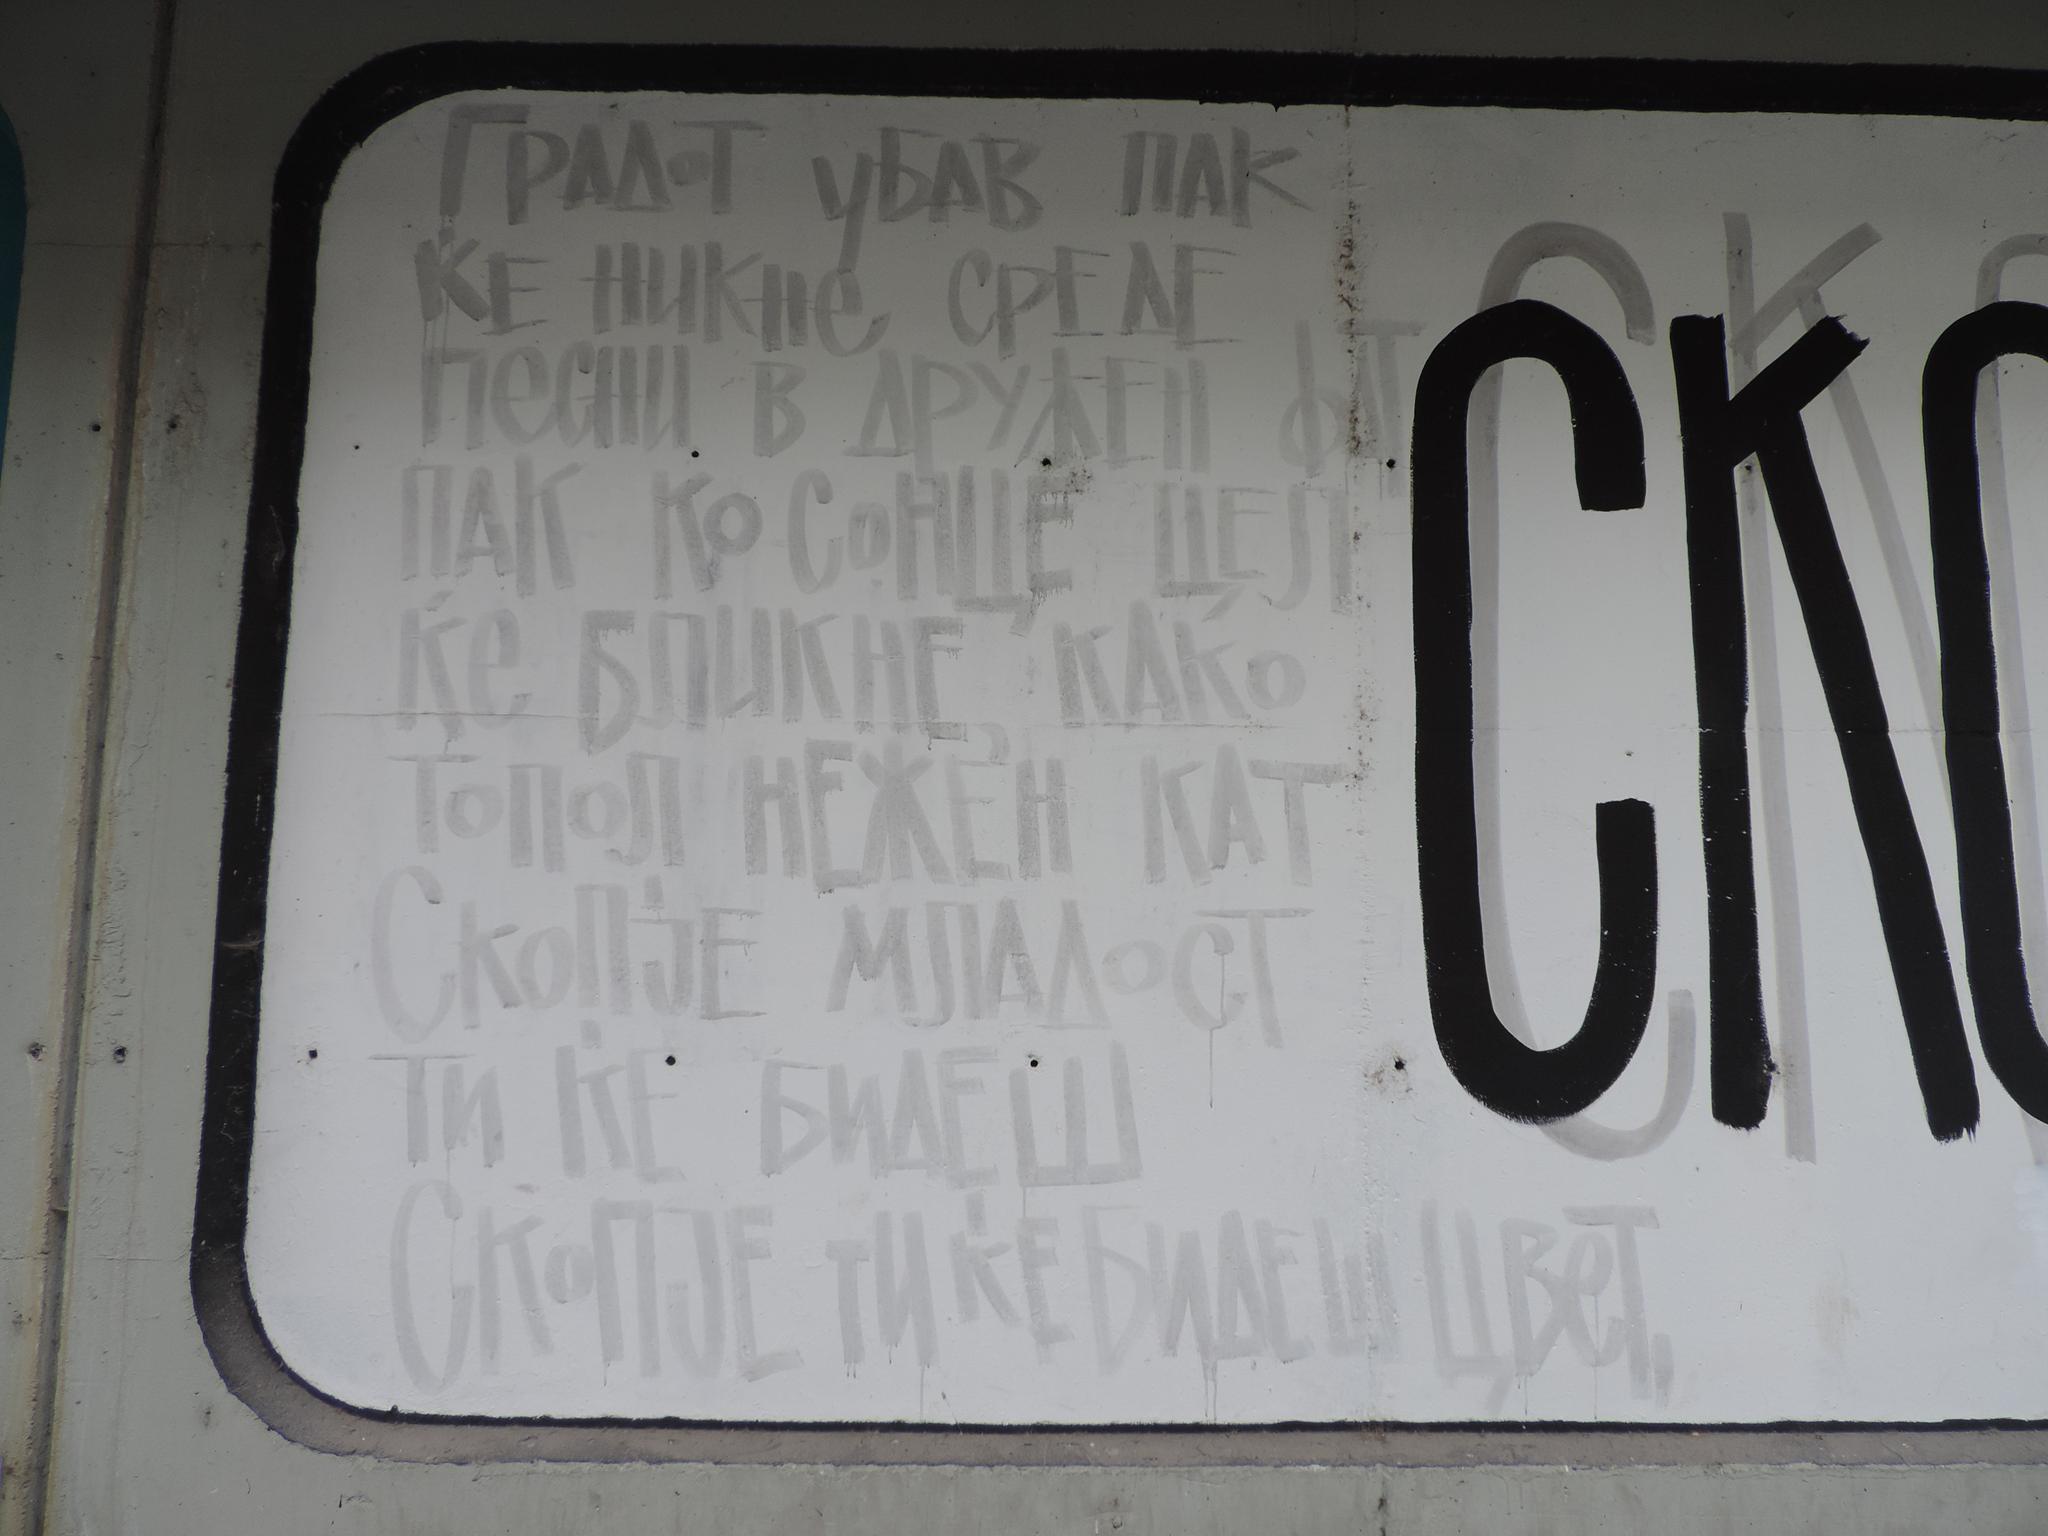 Градот убав пак
ќе никне среде
песни в дружен фт
пак ко сонце цел
ќе бликне како
топол нежен кат
Скопје младост
ти ќе бидеш
Скопје ти ќе бидеш цвет,
СКО